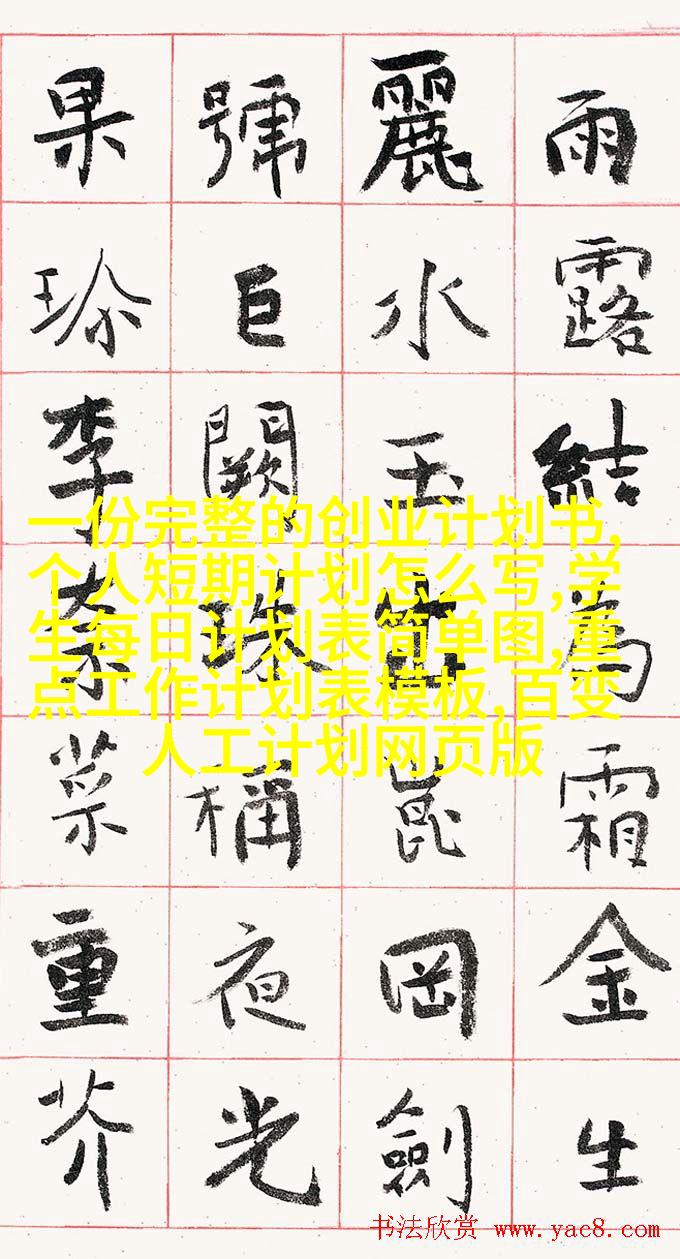 雨露結為霜金生
麗水玉出崑岡劍
號巨闕珠稱夜光
果珍李柰菜重芥
一份完整的创业计划书,
个人短期计划怎么写,学
生每日计划表简单图,重
点工作计划表模板,百变
人工计划网页版
书法欣赏 www.yac8.com